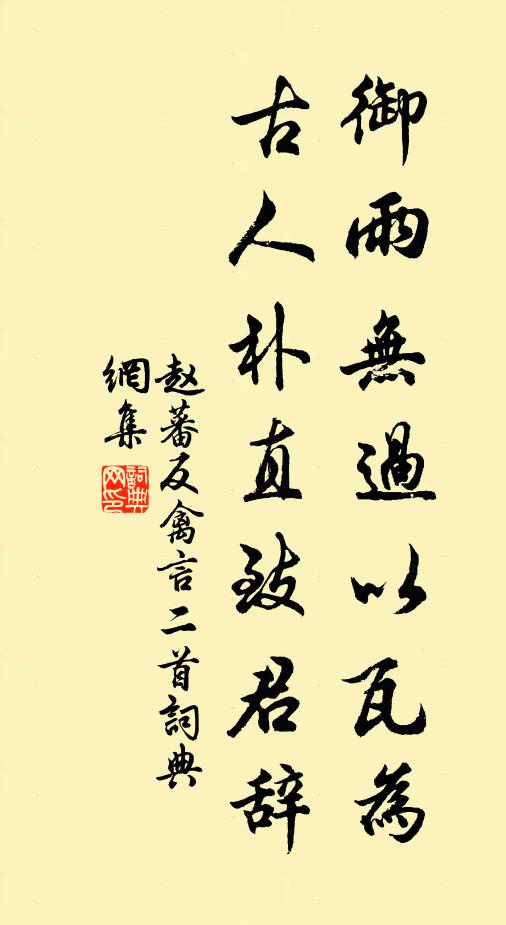 御雨無過以瓦為
古人朴直致君辞
赵蕃反禽言二首詞典
網集
詞典
网印